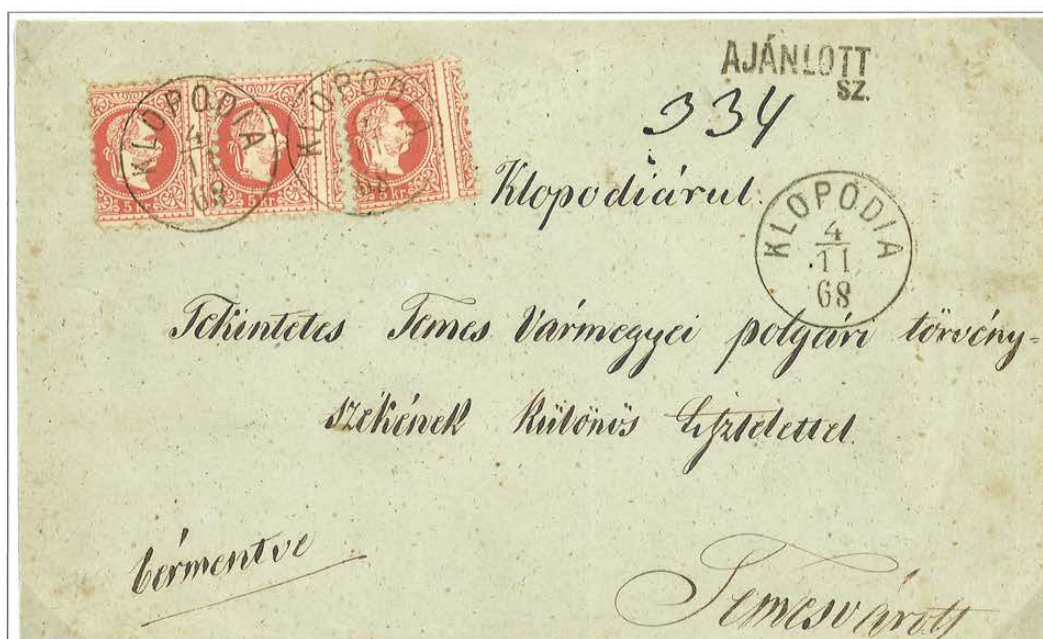 AJÁNLOTT
SZ.
334
KLOPODIA
4
11
68
KLOPODIA
68
5 Kr.
5 Kr.
5 Kr.
Klopodiárul.
KLOPODIA
4
11
68
Tekintetes Temes Vármegyei polgári törvény-
székének Különös tisztelettel.
bérmentve
Temesvárott